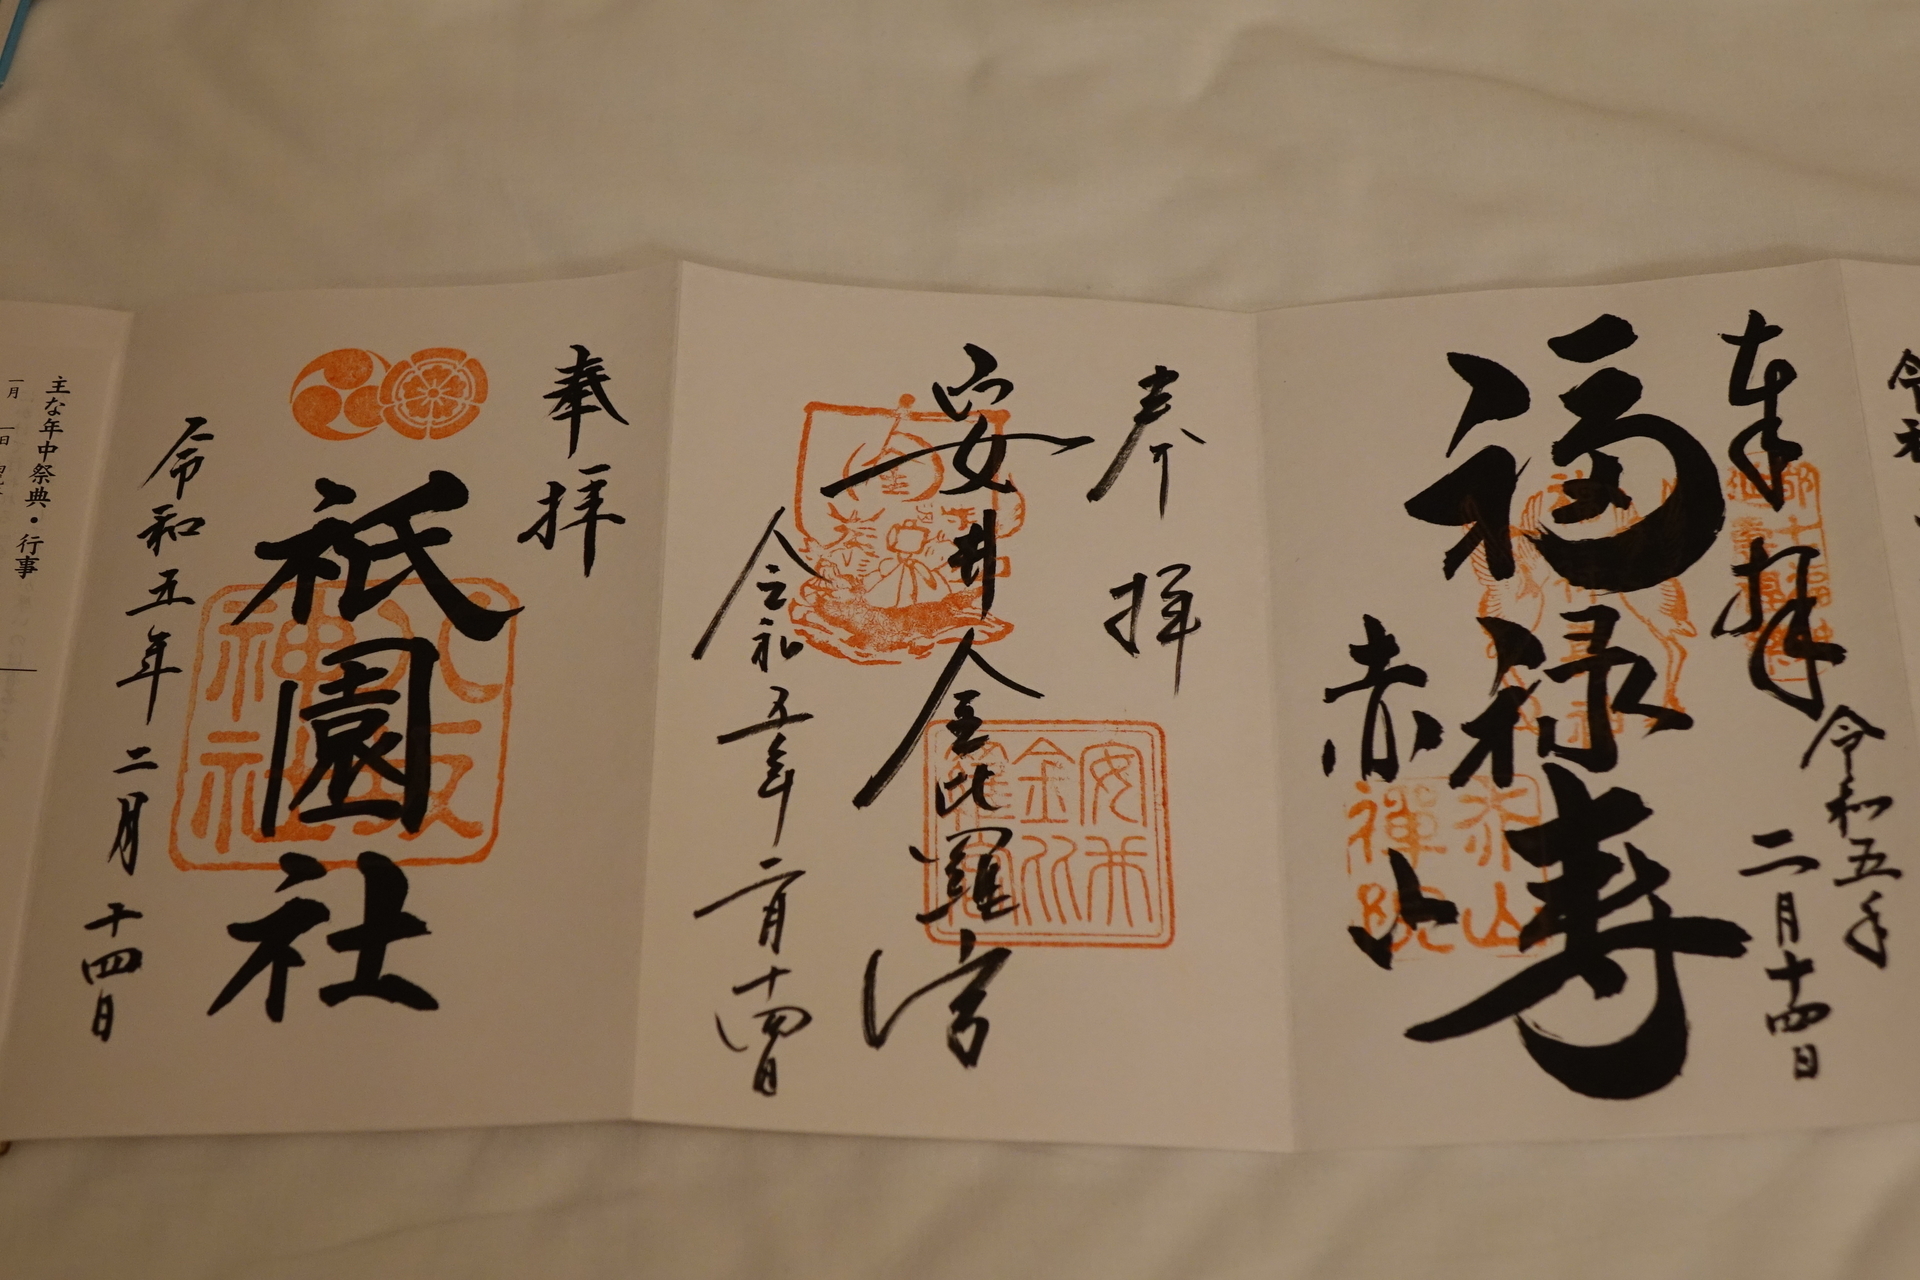 奉拝
福禄寿
赤山
令和五年
二月十四日
赤山
禅院
奉拝
安井金比羅宮
令和五年二月十四日
安井
金比
羅宮
奉拝
祇園社
八坂
神社
令和五年二月十四日
主な年中祭典・行事
一月
一日